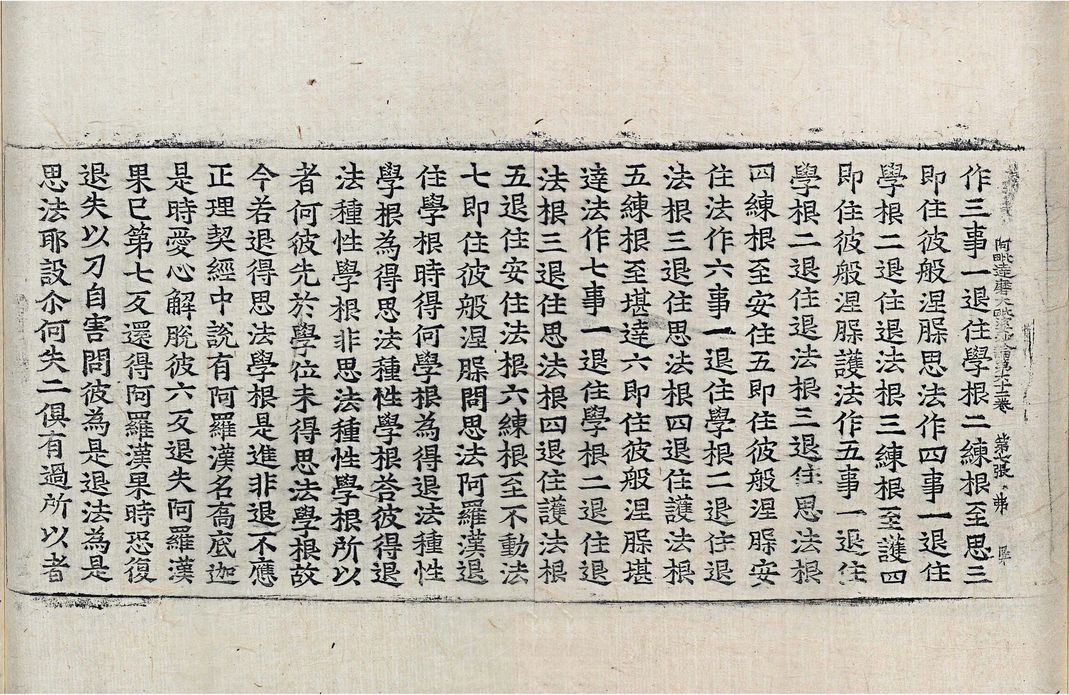 阿毗達磨大毗婆沙論第六十二卷 第 張 弟
作三事一退住學根二練根至思三
即住彼般涅脲思法作四事一退住
學根二退住退法根三練根至護四
即住彼般涅脲護法作五事一退住
學根二退住退法根三退住思法根
四練根至安住五即住彼般涅脲安
住法作六事一退住學根二退住退
法根三退住思法根四退住護法根
五練根至堪達六即住彼般涅脲堪
達法作七事一退住學根二退住退
法根三退住思法根四退住護法根
五退住安住法根六練根至不動法
七即住彼般涅脲問思法阿羅漢退
住學根時得何學根為得退法種性
學根為得思法種性學根荅彼得退
法種性學根非思法種性學根所以
者何彼先於學位未得思法學根故
今若退得思法學根是進非退不應
正理契經中說有阿羅漢名喬底迦
是時愛心解脫彼六反退失阿羅漢
果已第七反還得阿羅漢果時恐復
退失以刀自害問彼為是退法為是
思法耶設尒何失二俱有過所以者